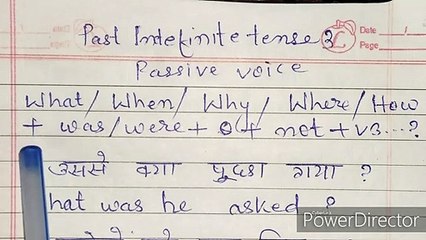 Past Indefinite tense
Date
Page
Passive voice
What/When/Why/Where/How
+ was/were + O + not + v3...?
उससे क्या पूछा गया ?
hat was he asked ?
PowerDirector